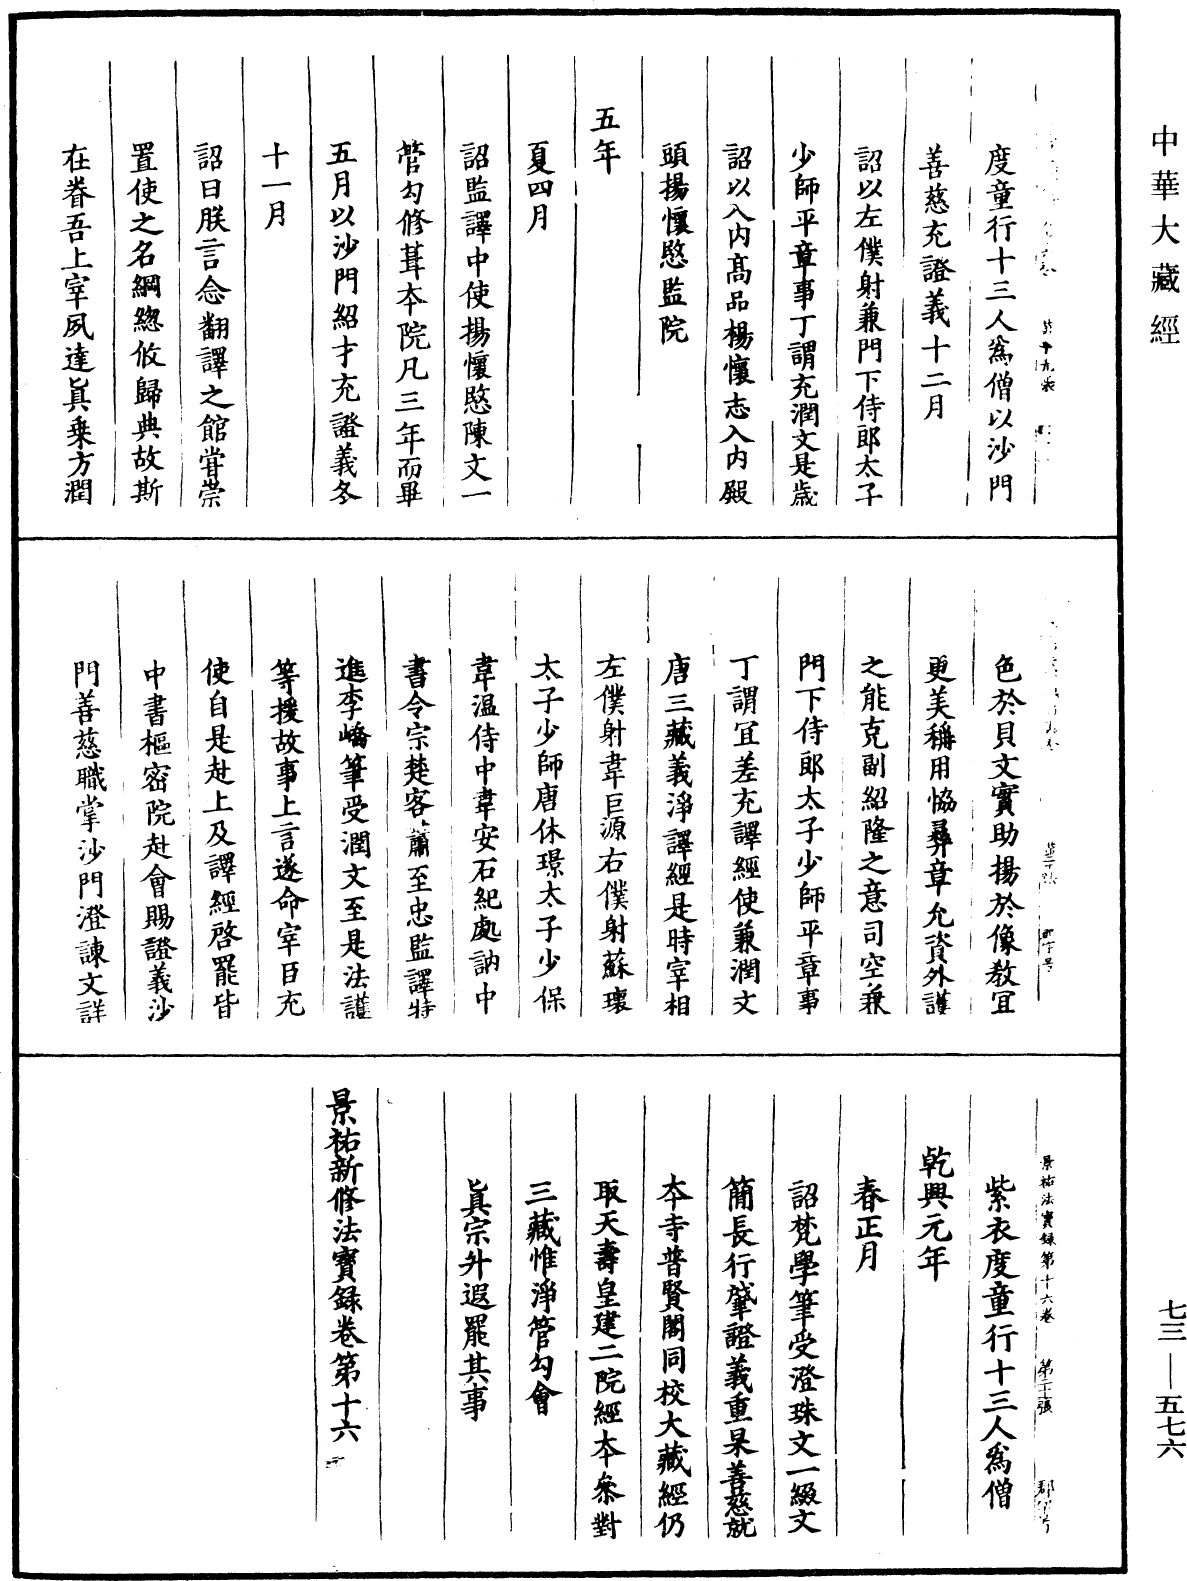 中華大藏經
度童行十三人爲僧以沙門
善慈充證義十二月
詔以左僕射兼門下侍郎太子
少師平章事丁謂充潤文是歲
詔以入內高品楊懷志入內殿
頭揚懷愍監院
五年
夏四月
詔監譯中使揚懷愍陳文一
管勾修葺本院凡三年而畢
五月以沙門紹才充證義冬
十一月
詔曰朕言念翻譯之館甞崇
置使之名綱緫攸歸典故斯
在眷吾上宰夙達眞乗方潤
色於貝文實助揚於像教冝
更美稱用恊彞章允資外護
之能克副紹隆之意司空兼
門下侍郎太子少師平章事
丁謂冝差充譯經使兼潤文
唐三藏義淨譯經是時宰相
左僕射韋巨源右僕射蘇瓌
太子少師唐休璟太子少保
韋温侍中韋安石紀處訥中
書令宗楚客蕭至忠監譯特
進李嶠筆受潤文至是法護
等援故事上言遂命宰臣充
使自是赴上及譯經啓罷皆
中書樞密院赴會賜證義沙
門善慈職掌沙門澄諫文詳
景祐法寶録第十六卷 第二十一張 郡字号
紫衣度童行十三人爲僧
乾興元年
春正月
詔梵學筆受澄珠文一綴文
簡長行肇證義重杲善慈就
本寺普賢閣同校大藏經仍
取天壽皇建二院經本叅對
三藏惟淨管勾會
眞宗升遐罷其事
景祐新修法寶録卷第十六
七三—五七六